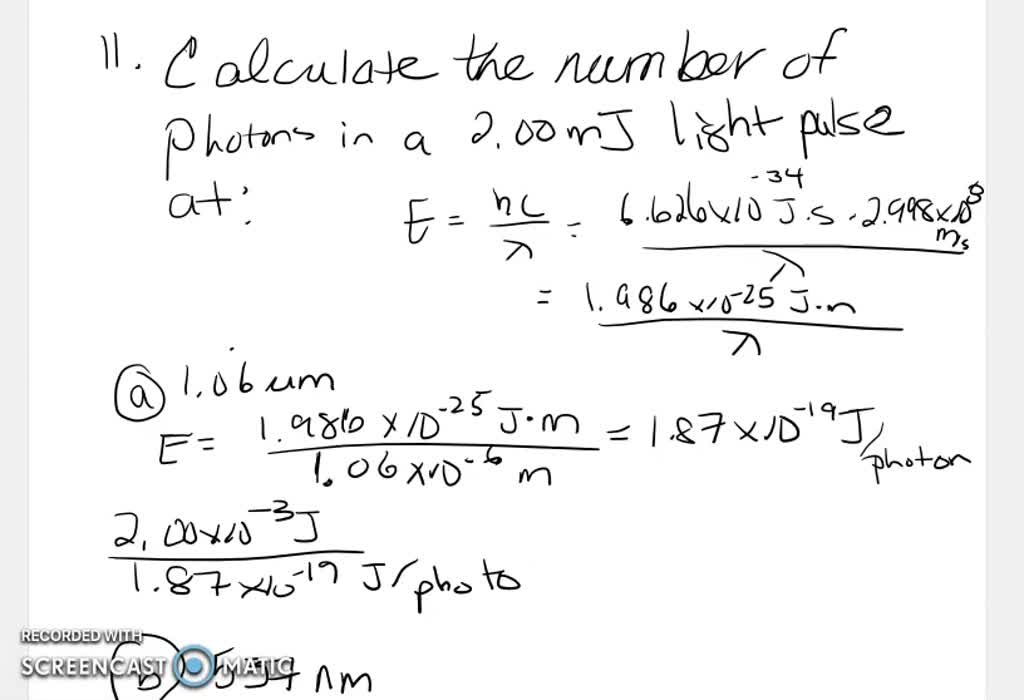 11. Calculate the number of
photons in a 2.00 mJ light pulse
at:
E = hc/λ = 6.626x10^-34 J.s . 2.998x10^8 m/s / λ
= 1.986x10^-25 J.m / λ
(a) 1.06 um
E = 1.986 x 10^-25 J.m / 1.06x10^-6 m = 1.87 x 10^-19 J/photon
2.00x10^-3 J
1.87 x10^-19 J/photo
RECORDED WITH
SCREENCAST MATIC
(b) nm